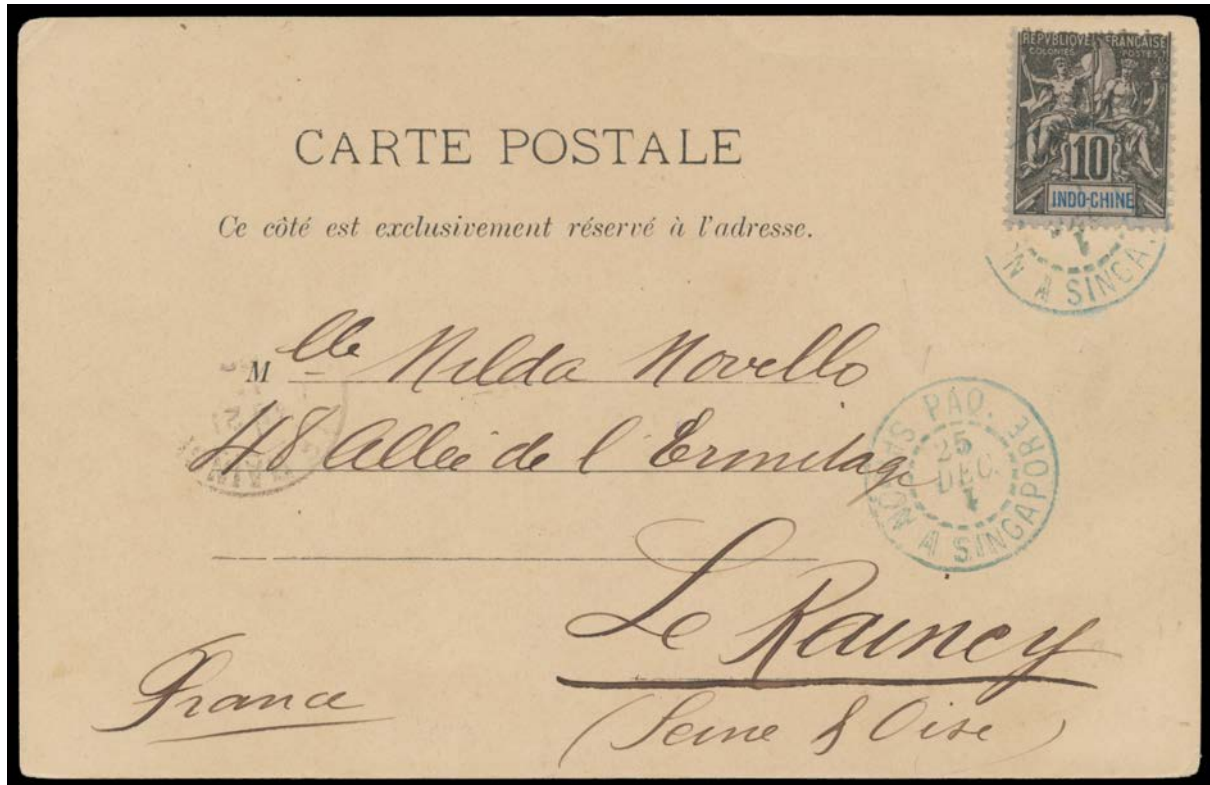 REPVBLIQVE FRANÇAISE
COLONIES POSTES
10
INDO-CHINE
1
N A SINGA
CARTE POSTALE
Ce côté est exclusivement réservé à l'adresse.
Mlle Nilda Novello
48 Allée de l'Ermitage
PAQ.
25
DEC.
1
ON A SINGAPORE
Le Raincy
(Seine & Oise)
France